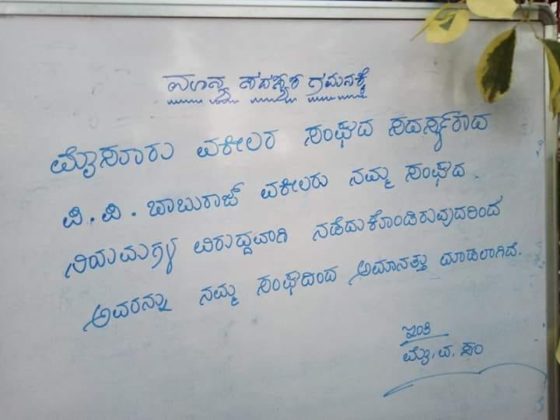 ಮಾನ್ಯ ಸದಸ್ಯರ ಗಮನಕ್ಕೆ
ಮೈಸೂರು ವಕೀಲರ ಸಂಘದ ಸದಸ್ಯರಾದ
ಪಿ. ವಿ. ಬಾಬುರಾಜ್ ವಕೀಲರು ನಮ್ಮ ಸಂಘದ
ನಿಯಮಗಳ ವಿರುದ್ಧವಾಗಿ ನಡೆದುಕೊಂಡಿರುವುದರಿಂದ
ಅವರನ್ನು ನಮ್ಮ ಸಂಘದಿಂದ ಅಮಾನತ್ತು ಮಾಡಲಾಗಿದೆ.
ಇಂತಿ
ಮೈ. ವ. ಸಂ